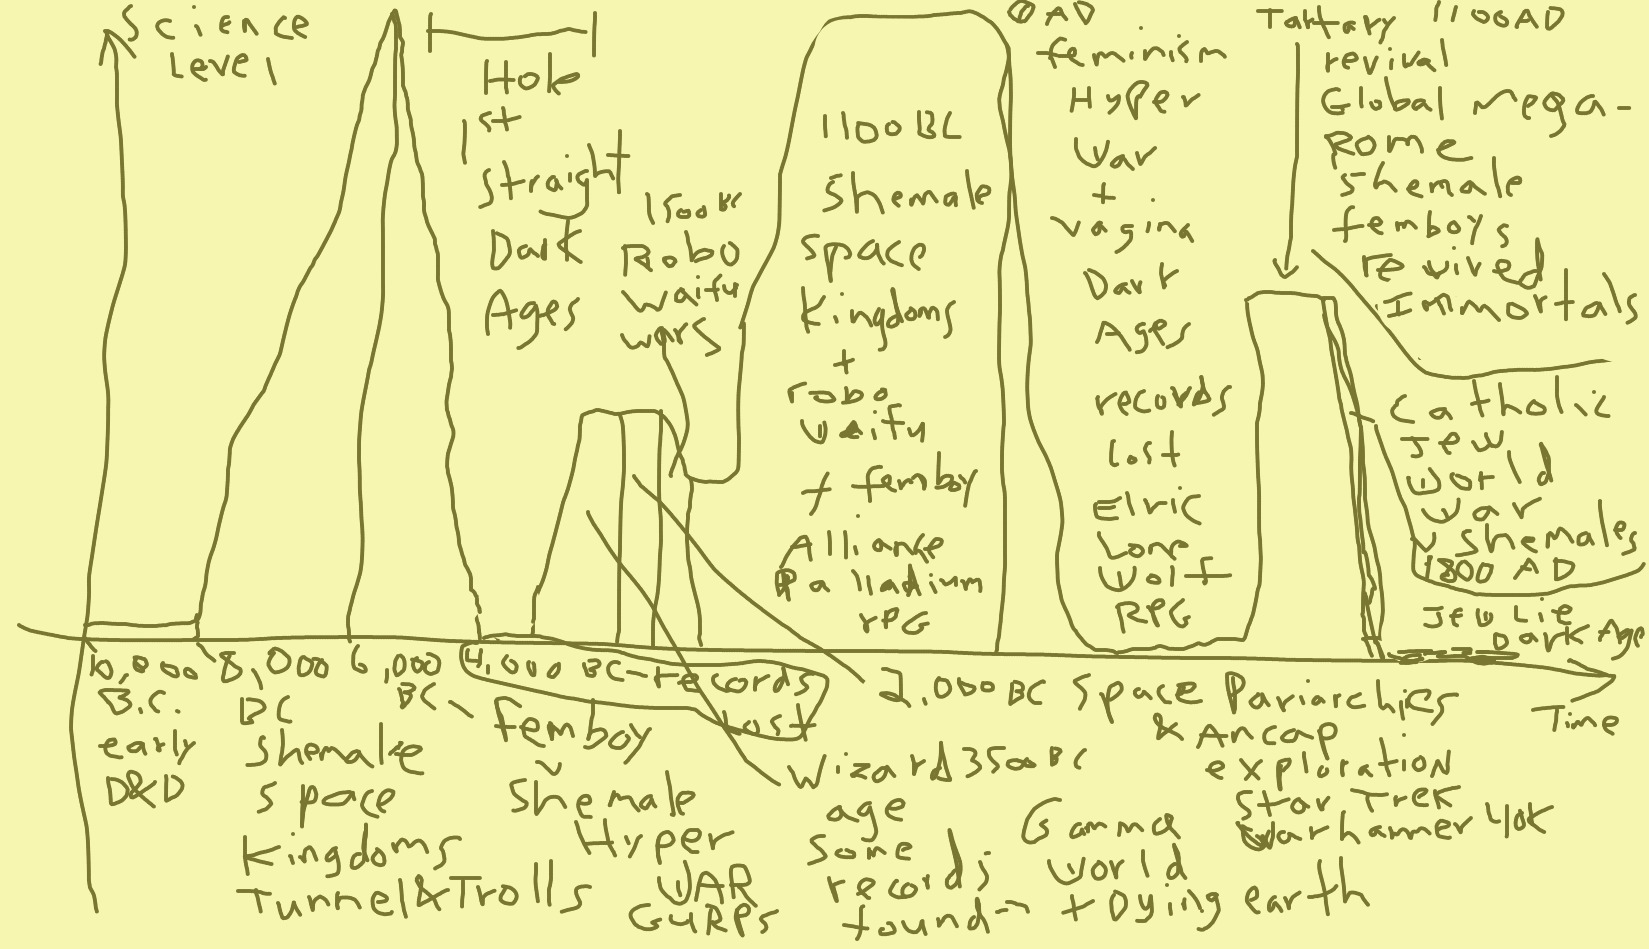 Science
Level
Hole
1st
Straight
Dark
Ages
1500 BC
Robo
waifu
wars
1100 BC
Shemale
Space
Kingdoms
+
robo
waifu
+ femboy
Alliance
Palladium
rPG
0 AD
feminism
Hyper
War
+
vagina
Dark
Ages
records
lost
Elric
Lone
Wolf
RPG
Tartary 1100AD
revival
Global mega-
Rome
Shemale
femboys
revived
Immortals
Catholic
Jew
World
War
v shemales
1800 AD
Jew Lie
Dark Age
Time
10,000
B.C.
early
D&D
8,000
BC
Shemale
Space
Kingdoms
Tunnel&Trolls
6,000
BC
femboy
v
Shemale
Hyper
WAR
GURPS
4,000 BC-records
lost
Wizard 3500BC
age
Some
records
found-
2,000BC Space Pariarchies
& Ancap
exploration
Star Trek
Warhammer 40K
Gamma
World
+ Dying earth